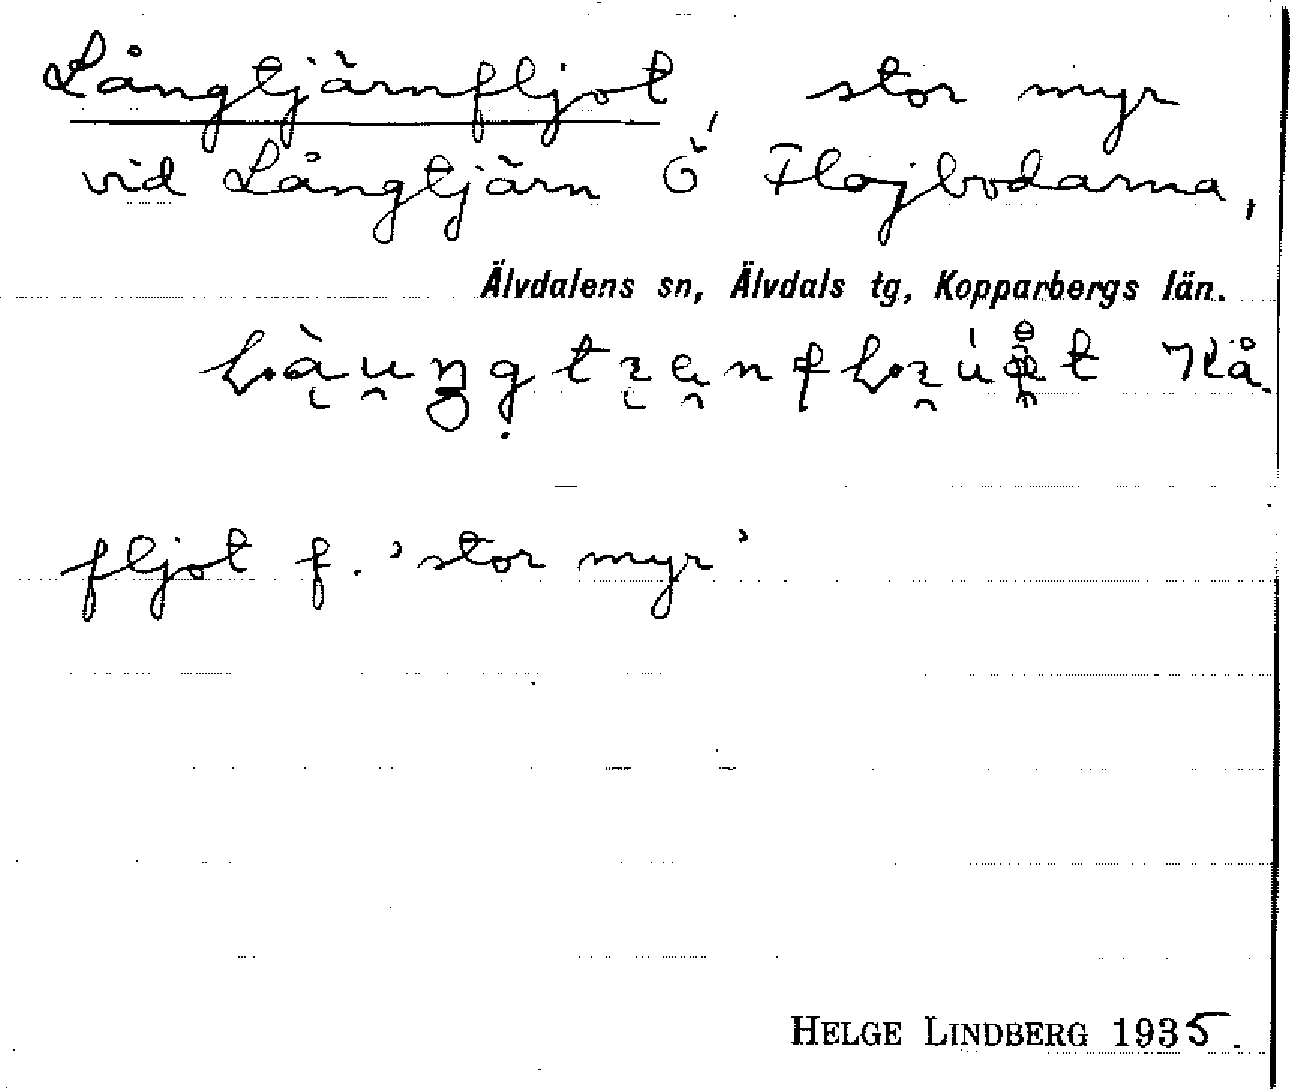 Långtjärnfljot, stor myr
vid Långtjärn Ö Flojbodarna,
Älvdalens sn, Älvdals tg, Kopparbergs län.
Kå.
fljot f. ’stor myr’
HELGE LINDBERG 1935.